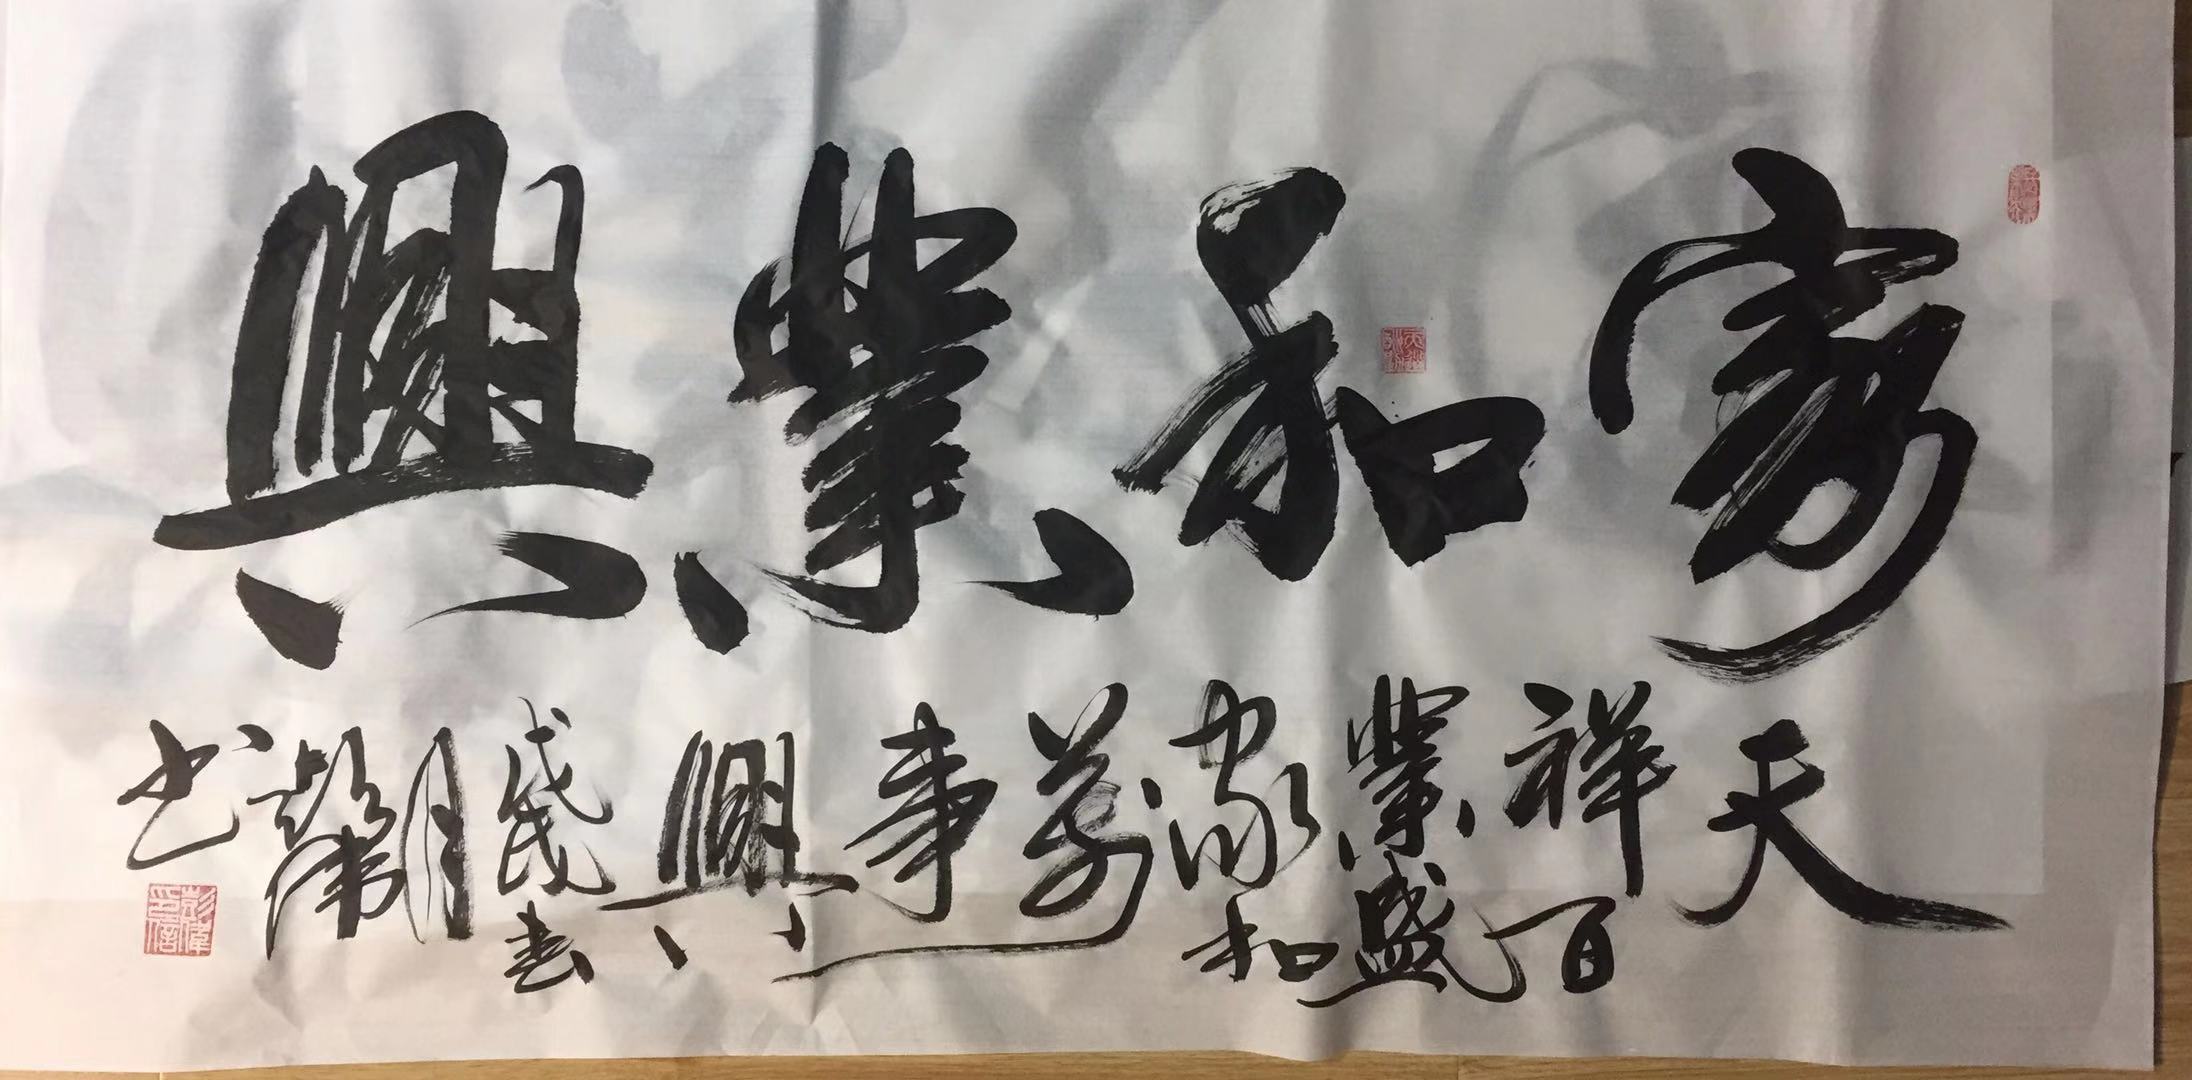 家和業興
天祥百業盛家和萬事興戊戌春月彭偉书
彭偉印信